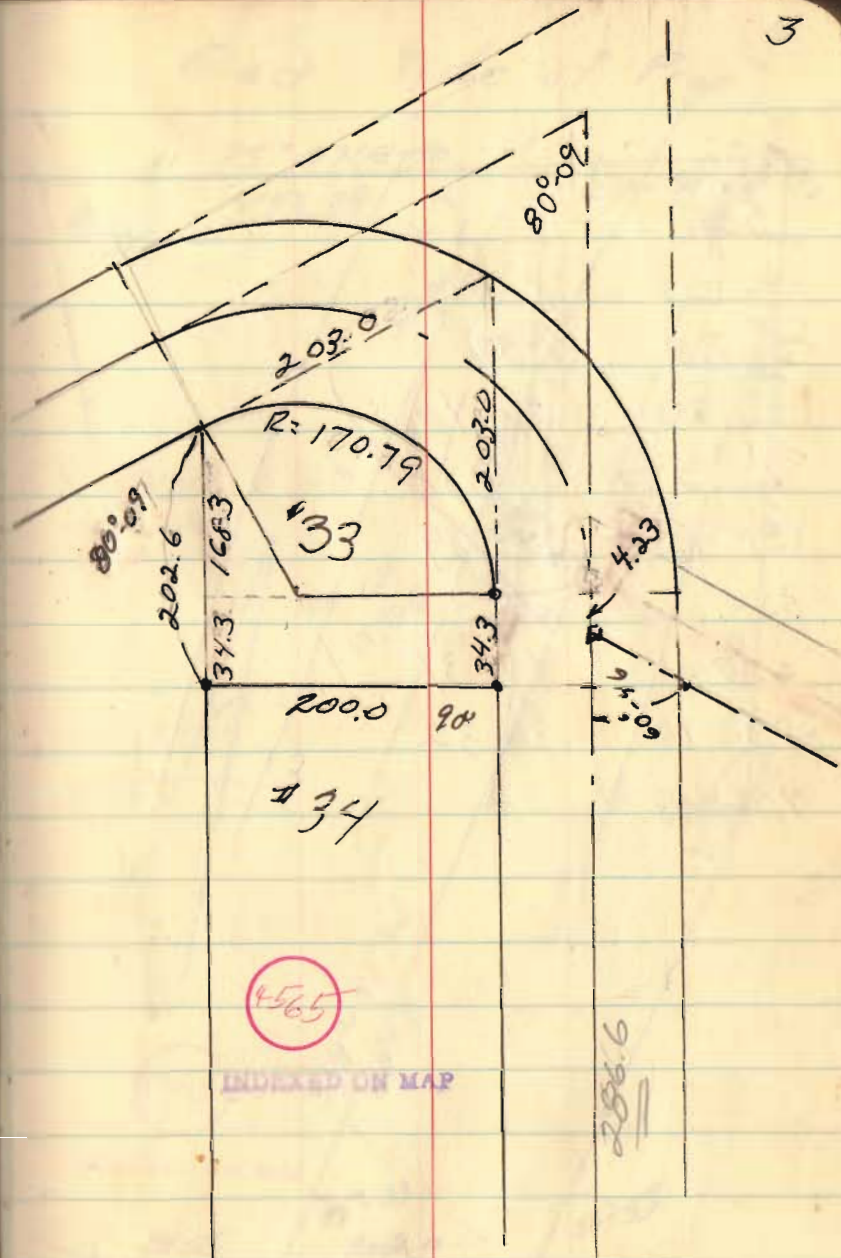 3
80°-09
203.0
R= 170.79
203.0
80°-09
202.6
168.3
#33
4.23
34.3
34.3
200.0
90°
#34
4565
INDEXED ON MAP
286.6